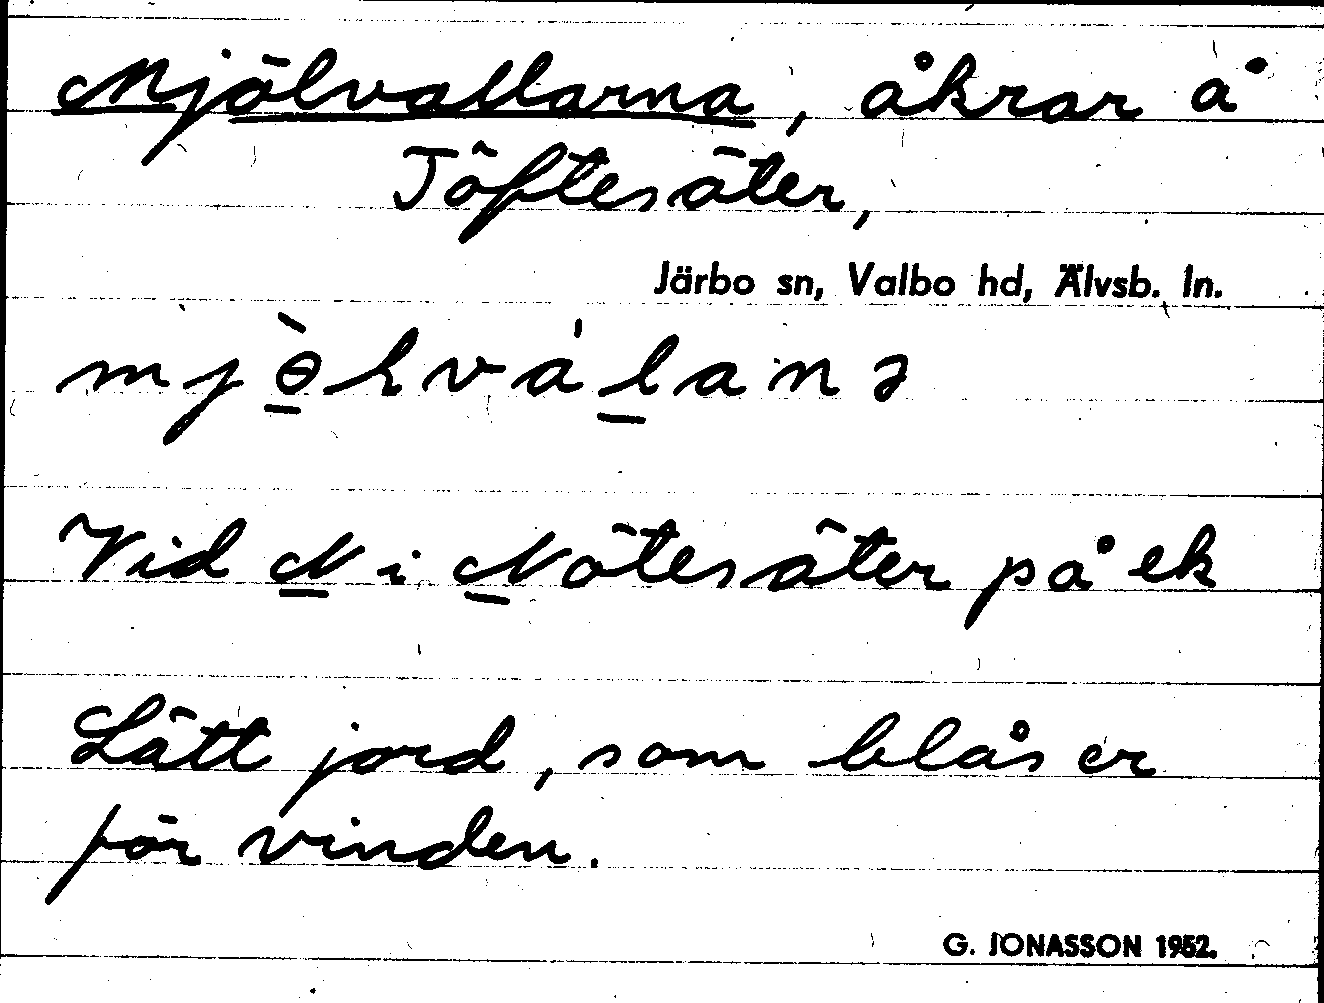 Mjölvallarna, åkrar å
Töftesäter,
Järbo sn, Valbo hd, Älvsb. ln.
mjɵ̀lválanə
Vid N i Nötesäter på ek
Lätt jord, som blåser
för vinden.
G. JONASSON 1952.